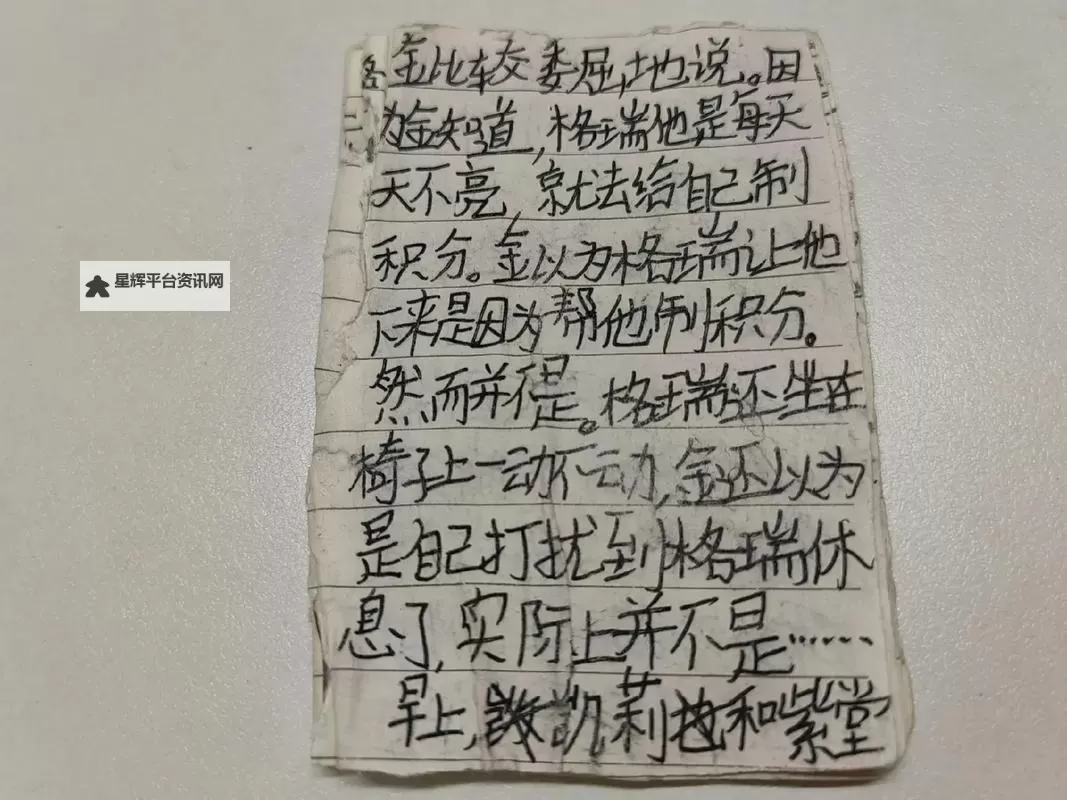 星辉平台资讯网
金比较委屈,地说。因
为金知道,格瑞他是每天
天不亮,就去给自己制
积分。金以为格瑞让他
下来是因为帮他制积分。
然而并不是。格瑞还坐在
椅子上一动不动,金还以为
是自己打扰到格瑞休
息了,实际上并不是……
早上,凯莉和紫堂